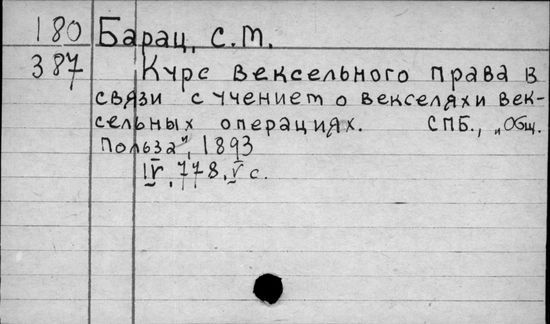 180 Барац, С.М.
387 Курс вексельного права в
связи с учением о векселях и век-
сельных операциях. СПБ., „Общ.
Польза", 1893
IV, 778, V с.